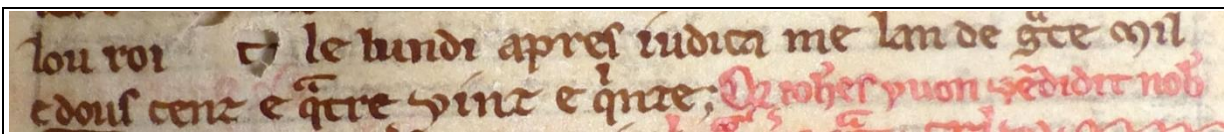 lou roi et le lundi apres iudica me lan de gᵃce mil
e dous cenz e qᵃtre vinz e qⁱnze; Qᵈ ioh̄es yuon vēdidit nob̄